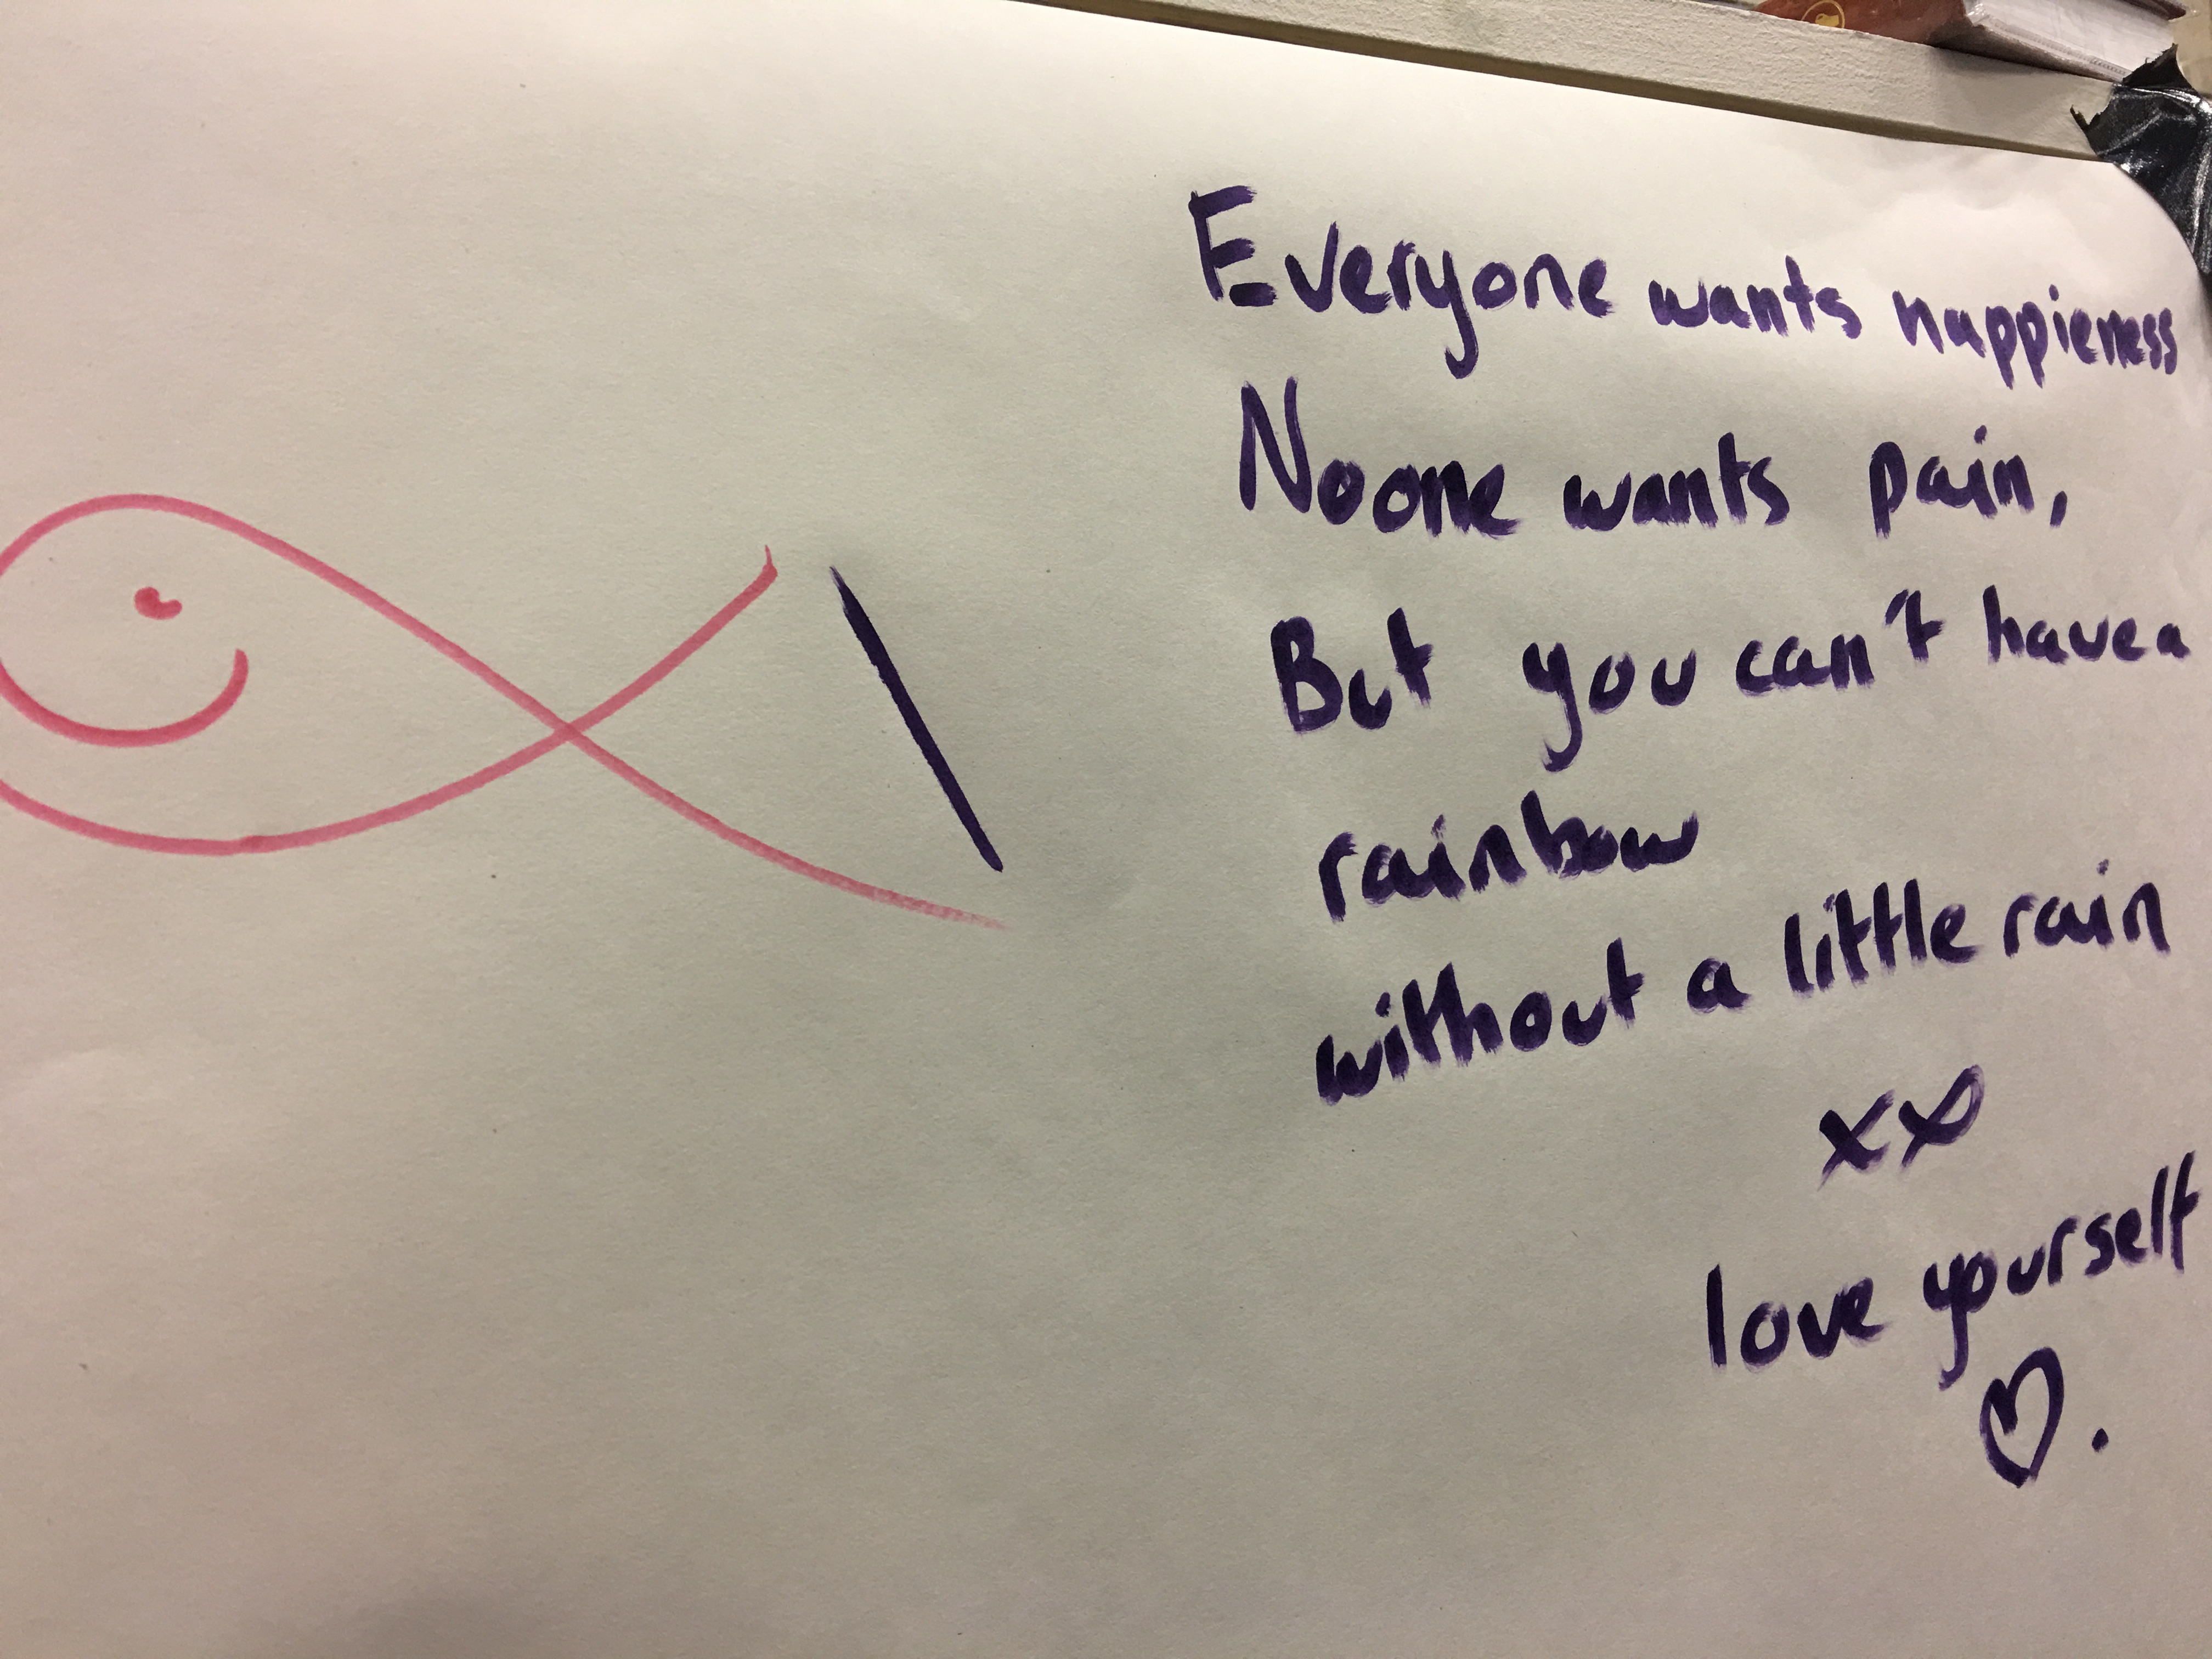 Everyone wants happieness
Noone wants pain,
But you can't have a
rainbow
without a little rain
xx
love yourself
♡.